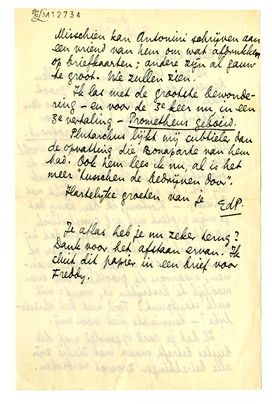 M12734
Misschien kan Antonini schrijven aan
een vriend van hem om wat afdrukken
op briefkaarten; andere zijn al gauw
te groot. We zullen zien.
Ik las met de grootste bewonde-
ring – en voor de 3e keer nu, in een
3e vertaling – Prometheus geboeid.
Plutarchus lijkt mij subtieler dan
de opvatting die Bonaparte van hem
had. Ook hem lees ik nu, al is het
meer "tusschen de bedrijven door".
Hartelijke groeten van je
EdP.
Je atlas heb je nu zeker terug?
Dank voor het afstaan ervan. Ik
sluit dit papier in een brief voor
Freddy.